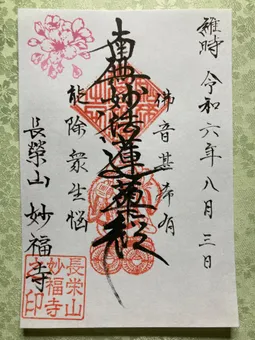 維時 令和六年八月三日
佛音甚希有
南無妙法蓮華経
能除衆生悩
長榮山 妙福寺
長栄山
妙福寺
之印